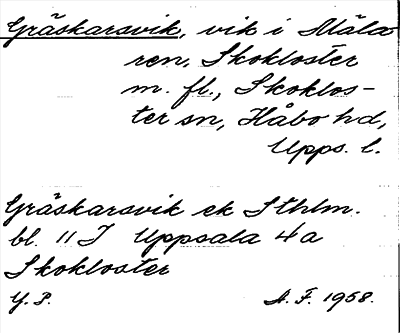 Gräskarsvik, vik i Mäla
ren, Skokloster
m. fl., Skoklos-
ter sn, Håbo hd,
Upps. l.
Gräskarsvik ek Sthlm.
bl. 11 J Uppsala 4a
Skokloster
Y. P. A. F. 1958.